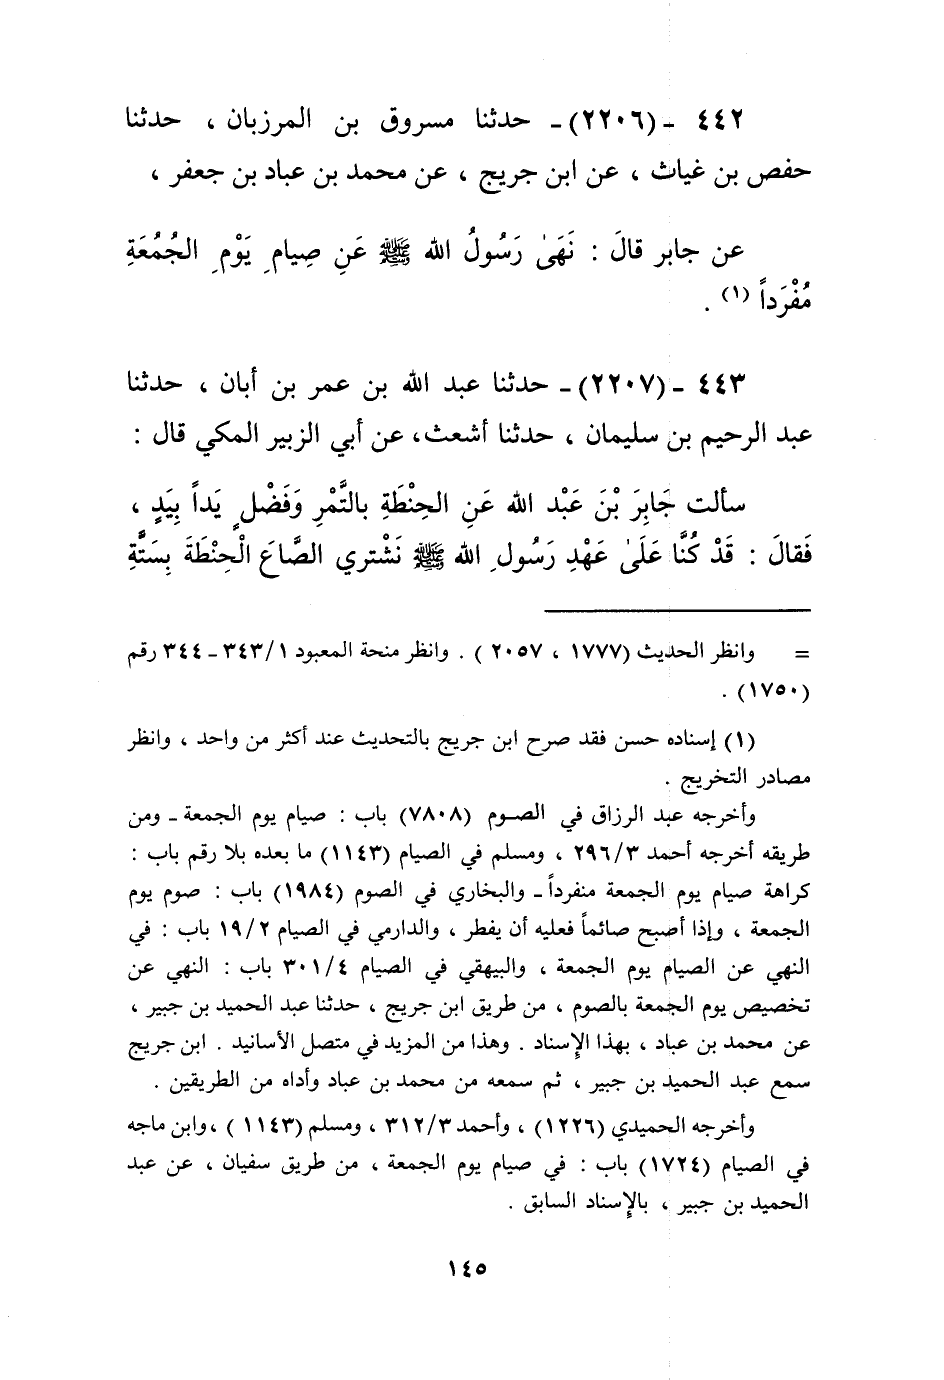 ٤٤٢ ـ (٢٢٠٦)ـ حدثنا مسروق بن المرزبان ، حدثنا
حفص بن غياث ، عن ابن جريج ، عن محمد بن عباد بن جعفر ،
عن جابر قالَ : نَهَىٰ رَسُولُ الله ﷺ عَنِ صِيامِ يَوْمِ الجُمُعَةِ
مُفْرَداً (١) .
٤٤٣ ـ (٢٢٠٧)ـ حدثنا عبد الله بن عمر بن أبان ، حدثنا
عبد الرحيم بن سليمان ، حدثنا أشعث، عن أبي الزبير المكي قال :
سألت جَابِرَ بْنَ عَبْد الله عَنِ الحِنْطَةِ بالتَّمْرِ وَفَضْلٍ يَداً بِيَدٍ ،
فَقالَ : قَدْ كُنَّا عَلَىٰ عَهْدِ رَسُولِ الله ﷺ نَشْتري الصَّاعَ الْحِنْطَةَ بِسَتَّةِ
= وانظر الحديث (١٧٧٧ ، ٢٠٥٧ ) . وانظر منحة المعبود ٣٤٣/١ ـ ٣٤٤ رقم
(١٧٥٠) .
(١) إسناده حسن فقد صرح ابن جريج بالتحديث عند أكثر من واحد ، وانظر
مصادر التخريج .
وأخرجه عبد الرزاق في الصوم (٧٨٠٨) باب : صيام يوم الجمعة ـ ومن
طريقه أخرجه أحمد ٢٩٦/٣ ، ومسلم في الصيام (١١٤٣) ما بعده بلا رقم باب :
كراهة صيام يوم الجمعة منفرداً ـ والبخاري في الصوم (١٩٨٤) باب : صوم يوم
الجمعة ، وإذا أصبح صائماً فعليه أن يفطر ، والدارمي في الصيام ١٩/٢ باب : في
النهي عن الصيام يوم الجمعة ، والبيهقي في الصيام ٣٠١/٤ باب : النهي عن
تخصيص يوم الجمعة بالصوم ، من طريق ابن جريج ، حدثنا عبد الحميد بن جبير ،
عن محمد بن عباد ، بهذا الإسناد . وهذا من المزيد في متصل الأسانيد . ابن جريج
سمع عبد الحميد بن جبير ، ثم سمعه من محمد بن عباد وأداه من الطريقين .
وأخرجه الحميدي (١٢٢٦) ، وأحمد ٣١٢/٣ ، ومسلم (١١٤٣ ) ،وابن ماجه
في الصيام (١٧٢٤) باب : في صيام يوم الجمعة ، من طريق سفيان ، عن عبد
الحميد بن جبير ، بالإسناد السابق .
١٤٥